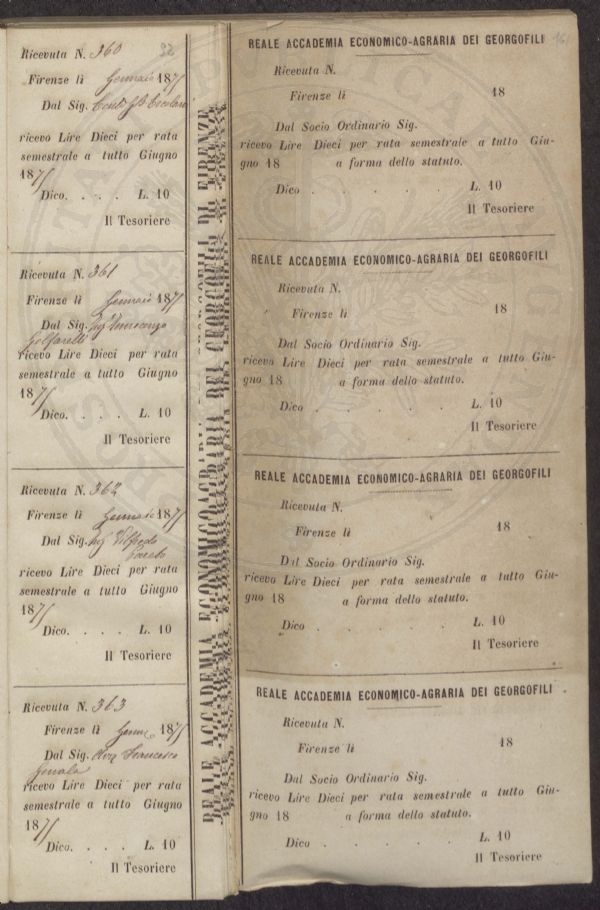 Ricevuta N. 360
Firenze li Gennaio 187
Dal Sig.
ricevo Lire Dieci per rata
semestrale a tutto Giugno
187
Dico. . . . L. 10
Il Tesoriere
Ricevuta N. 361
Firenze li Gennaio 187
Dal Sig. Ing Vincenzo
ricevo Lire Dieci per rata
semestrale a tutto Giugno
187
Dico. . . . L. 10
Il Tesoriere
Ricevuta N. 362
Firenze li Gennaio 187
Dal Sig. Ing Vilfredo
Pareto
ricevo Lire Dieci per rata
semestrale a tutto Giugno
187
Dico. . . . L. 10
Il Tesoriere
Ricevuta N. 363
Firenze li 187
Dal Sig. Francesco
Genala
ricevo Lire Dieci per rata
semestrale a tutto Giugno
187
Dico. . . . L. 10
Il Tesoriere
REALE ACCADEMIA ECONOMICO-AGRARIA DEI GEORGOFILI DI FIRENZE
REALE ACCADEMIA ECONOMICO-AGRARIA DEI GEORGOFILI
Ricevuta N.
Firenze li 18
Dal Socio Ordinario Sig.
ricevo Lire Dieci per rata semestrale a tutto Giu-
gno 18 a forma dello statuto.
Dico . . . . . L. 10
Il Tesoriere
REALE ACCADEMIA ECONOMICO-AGRARIA DEI GEORGOFILI
Ricevuta N.
Firenze li 18
Dal Socio Ordinario Sig.
ricevo Lire Dieci per rata semestrale a tutto Giu-
gno 18 a forma dello statuto.
Dico . . . . . L. 10
Il Tesoriere
REALE ACCADEMIA ECONOMICO-AGRARIA DEI GEORGOFILI
Ricevuta N.
Firenze li 18
Dal Socio Ordinario Sig.
ricevo Lire Dieci per rata semestrale a tutto Giu-
gno 18 a forma dello statuto.
Dico . . . . . L. 10
Il Tesoriere
REALE ACCADEMIA ECONOMICO-AGRARIA DEI GEORGOFILI
Ricevuta N.
Firenze li 18
Dal Socio Ordinario Sig.
ricevo Lire Dieci per rata semestrale a tutto Giu-
gno 18 a forma dello statuto.
Dico . . . . . L. 10
Il Tesoriere